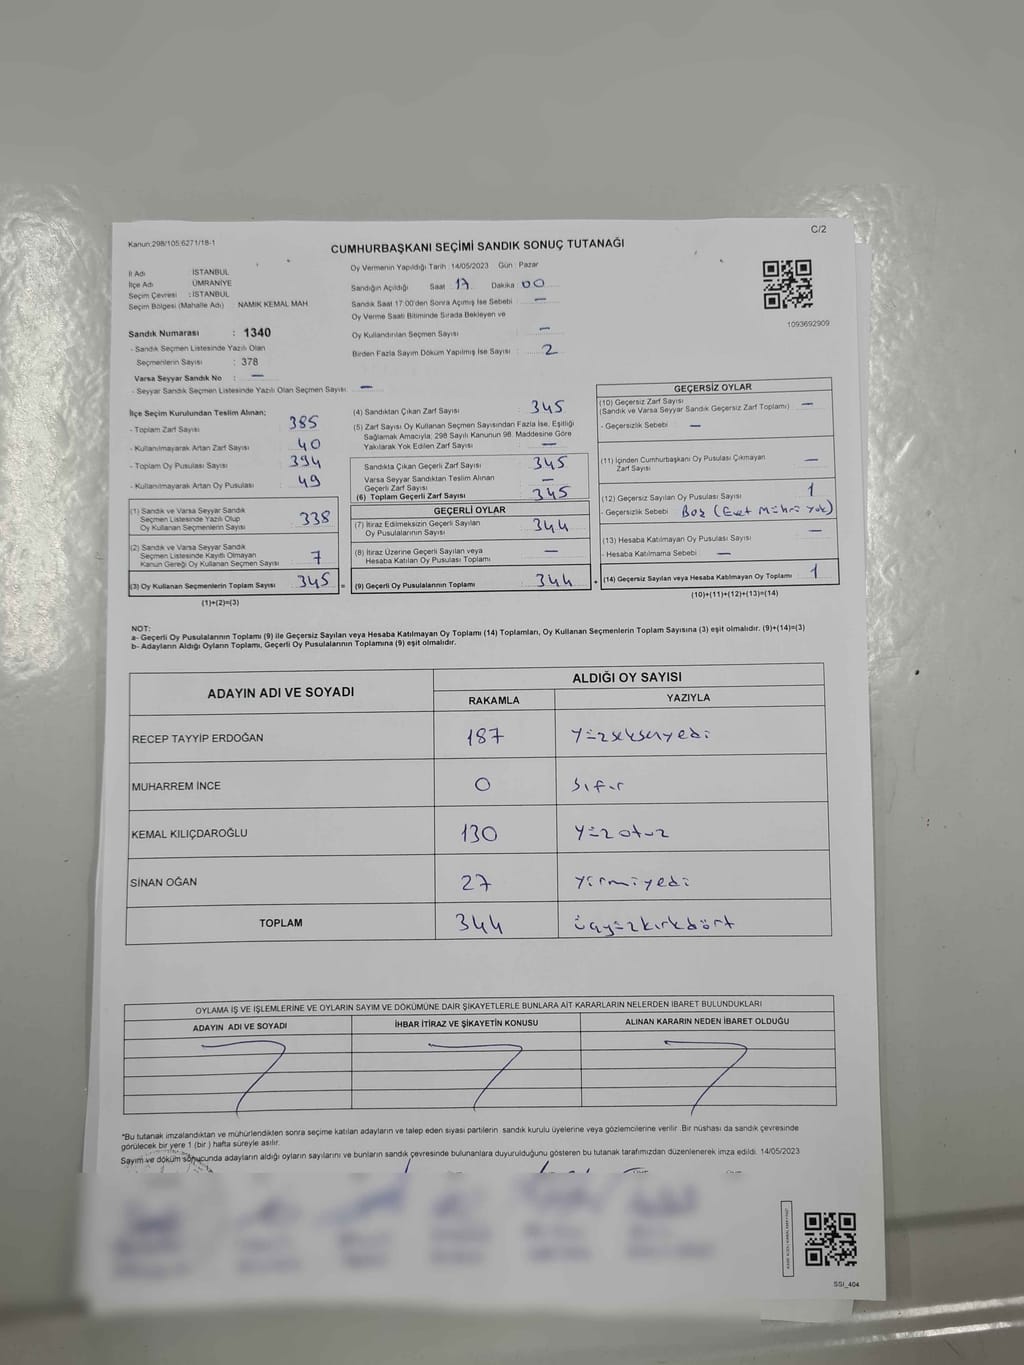 C/2
Kanun:298/105 6271/18-1
CUMHURBAŞKANI SEÇİMİ SANDIK SONUÇ TUTANAĞI
İl Adı : İSTANBUL
İlçe Adı : ÜMRANİYE
Seçim Çevresi : İSTANBUL
Seçim Bölgesi (Mahalle Adı) : NAMIK KEMAL MAH
Sandık Numarası : 1340
- Sandık Seçmen Listesinde Yazılı Olan
Seçmenlerin Sayısı : 378
Varsa Seyyar Sandık No : —
- Seyyar Sandık Seçmen Listesinde Yazılı Olan Seçmen Sayısı : —
Oy Vermenin Yapıldığı Tarih : 14/05/2023 Gün : Pazar
Sandığın Açıldığı Saat : 17 Dakika : 00
Sandık Saat 17:00'den Sonra Açılmış İse Sebebi : —
Oy Verme Saati Bitiminde Sırada Bekleyen ve
Oy Kullandırılan Seçmen Sayısı : —
Birden Fazla Sayım Döküm Yapılmış İse Sayısı : 2
1093692909
İlçe Seçim Kurulundan Teslim Alınan;
- Toplam Zarf Sayısı : 385
- Kullanılmayarak Artan Zarf Sayısı : 40
- Toplam Oy Pusulası Sayısı : 394
- Kullanılmayarak Artan Oy Pusulası : 49
(1) Sandık ve Varsa Seyyar Sandık
Seçmen Listesinde Yazılı Olup
Oy Kullanan Seçmenlerin Sayısı 338
(2) Sandık ve Varsa Seyyar Sandık
Seçmen Listesinde Kayıtlı Olmayan
Kanun Gereği Oy Kullanan Seçmen Sayısı 7
(3) Oy Kullanan Seçmenlerin Toplam Sayısı 345 =
(1)+(2)=(3)
(4) Sandıktan Çıkan Zarf Sayısı : 345
(5) Zarf Sayısı Oy Kullanan Seçmen Sayısından Fazla İse, Eşitliği
Sağlamak Amacıyla; 298 Sayılı Kanunun 98. Maddesine Göre
Yakılarak Yok Edilen Zarf Sayısı : —
Sandıkta Çıkan Geçerli Zarf Sayısı : 345
Varsa Seyyar Sandıktan Teslim Alınan
Geçerli Zarf Sayısı : —
(6) Toplam Geçerli Zarf Sayısı : 345
GEÇERLİ OYLAR
(7) İtiraz Edilmeksizin Geçerli Sayılan
Oy Pusulalarının Sayısı : 344
(8) İtiraz Üzerine Geçerli Sayılan veya
Hesaba Katılan Oy Pusulası Toplamı : —
(9) Geçerli Oy Pusulalarının Toplamı : 344 +
GEÇERSİZ OYLAR
(10) Geçersiz Zarf Sayısı
(Sandık ve Varsa Seyyar Sandık Geçersiz Zarf Toplamı) : —
- Geçersizlik Sebebi : —
(11) İçinden Cumhurbaşkanı Oy Pusulası Çıkmayan
Zarf Sayısı : —
(12) Geçersiz Sayılan Oy Pusulası Sayısı : 1
- Geçersizlik Sebebi : Boş (Evet Mührü Yok)
(13) Hesaba Katılmayan Oy Pusulası Sayısı : —
- Hesaba Katılmama Sebebi : —
(14) Geçersiz Sayılan veya Hesaba Katılmayan Oy Toplamı : 1
(10)+(11)+(12)+(13)=(14)
NOT:
a- Geçerli Oy Pusulalarının Toplamı (9) ile Geçersiz Sayılan veya Hesaba Katılmayan Oy Toplamı (14) Toplamları, Oy Kullanan Seçmenlerin Toplam Sayısına (3) eşit olmalıdır. (9)+(14)=(3)
b- Adayların Aldığı Oyların Toplamı, Geçerli Oy Pusulalarının Toplamına (9) eşit olmalıdır.
ADAYIN ADI VE SOYADI ALDIĞI OY SAYISI
RAKAMLA YAZIYLA
RECEP TAYYİP ERDOĞAN 187 yüzseksenyedi
MUHARREM İNCE 0 sıfır
KEMAL KILIÇDAROĞLU 130 yüzotuz
SİNAN OĞAN 27 yirmiyedi
TOPLAM 344 üçyüzkırkdört
OYLAMA İŞ VE İŞLEMLERİNE VE OYLARIN SAYIM VE DÖKÜMÜNE DAİR ŞİKAYETLERLE BUNLARA AİT KARARLARIN NELERDEN İBARET BULUNDUKLARI
ADAYIN ADI VE SOYADI İHBAR İTİRAZ VE ŞİKAYETİN KONUSU ALINAN KARARIN NEDEN İBARET OLDUĞU
*Bu tutanak imzalandıktan ve mühürlendikten sonra seçime katılan adayların ve talep eden siyasi partilerin sandık kurulu üyelerine veya gözlemcilerine verilir. Bir nüshası da sandık çevresinde
görülecek bir yere 1 (bir) hafta süreyle asılır.
Sayım ve döküm sonucunda adayların aldığı oyların sayılarını ve bunların sandık çevresinde bulunanlara duyurulduğunu gösteren bu tutanak tarafımızdan düzenlenerek imza edildi. 14/05/2023
SSI_404